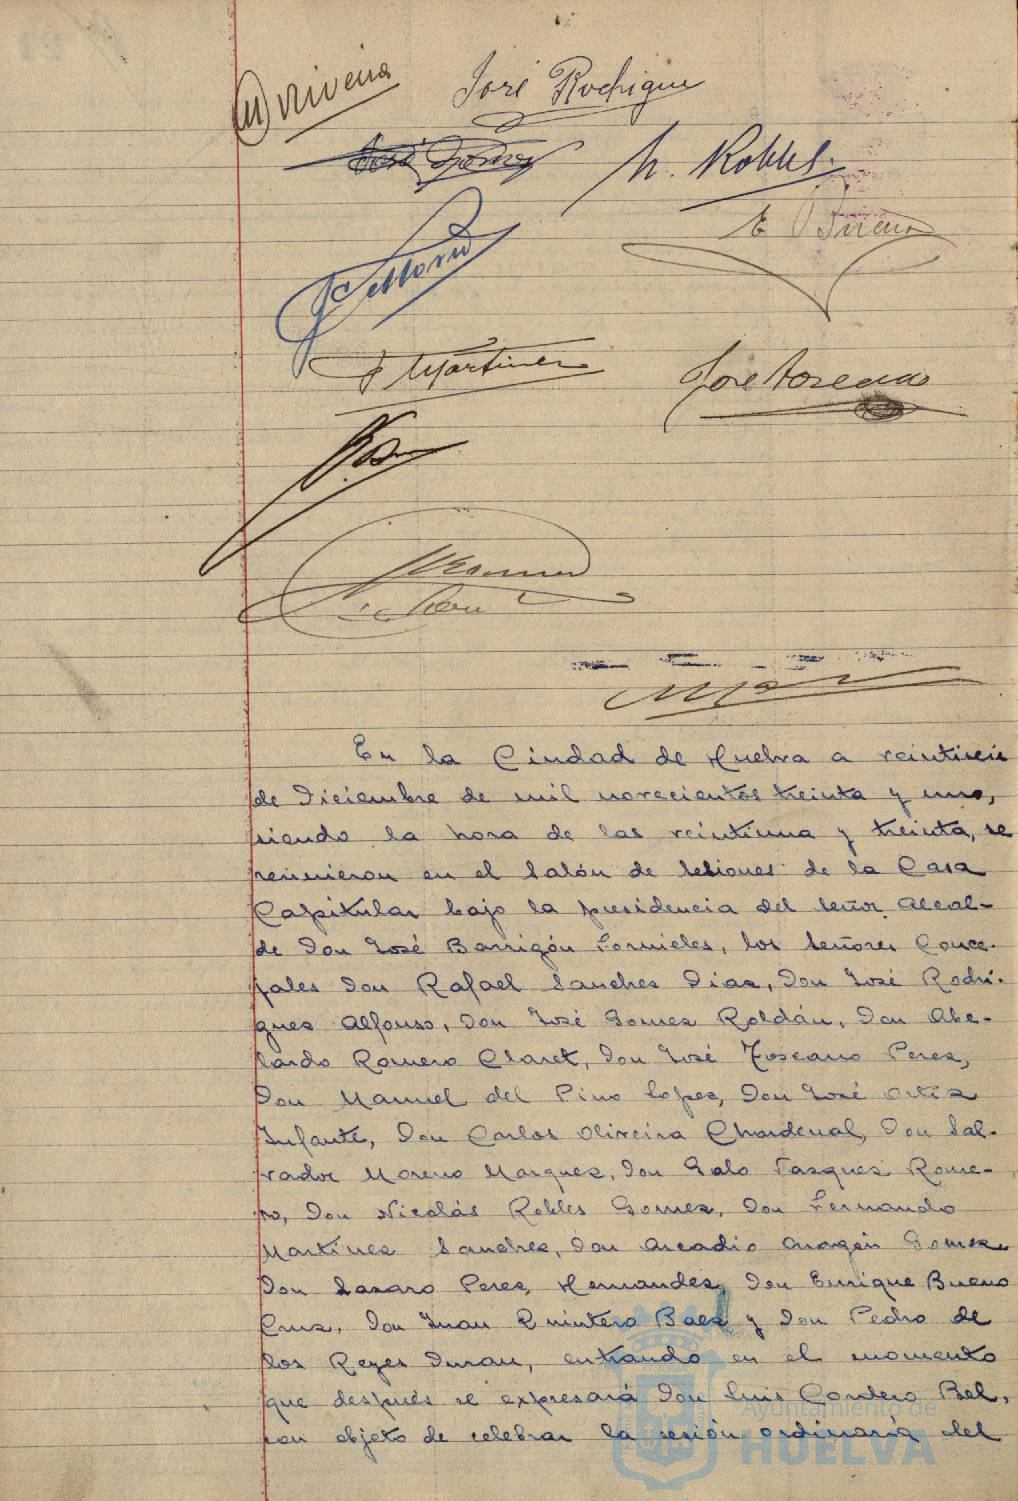 José Rodrigue
N. Robles.
E Bueno
F Martinez
José Toscano
En la Ciudad de Huelva a veintiseis
de Diciembre de mil novecientos treinta y uno,
siendo la hora de las veintiuna y treinta, se
reunieron en el Salón de Sesiones de la Casa
Capitular bajo la presidencia del Señor Alcal-
de Don José Barrigón Fornieles, los Señores Conce-
jales Don Rafael Sanchez Diaz, Don José Rodri-
guez Alfonso, Don José Gomez Roldán, Don Abe-
lardo Romero Claret, Don José Toscano Perez,
Don Manuel del Pino Lopez, Don José Ortiz
Infante, Don Carlos Oliveira Chardenal, Don Sal-
vador Moreno Marquez, Don Galo Vazquez Rome-
ro, Don Nicolás Robles Gomez, Don Fernando
Martinez Sanchez, Don Arcadio Aragón Gomez
Don Lazaro Perez Hernandez, Don Enrique Bueno
Cruz, Don Juan Quintero Baez y Don Pedro de
los Reyes Duran, entrando en el momento
que después se expresará Don Luis Cordero Bel,
con objeto de celebrar la sesión ordinaria del
Ayuntamiento de
HUELVA